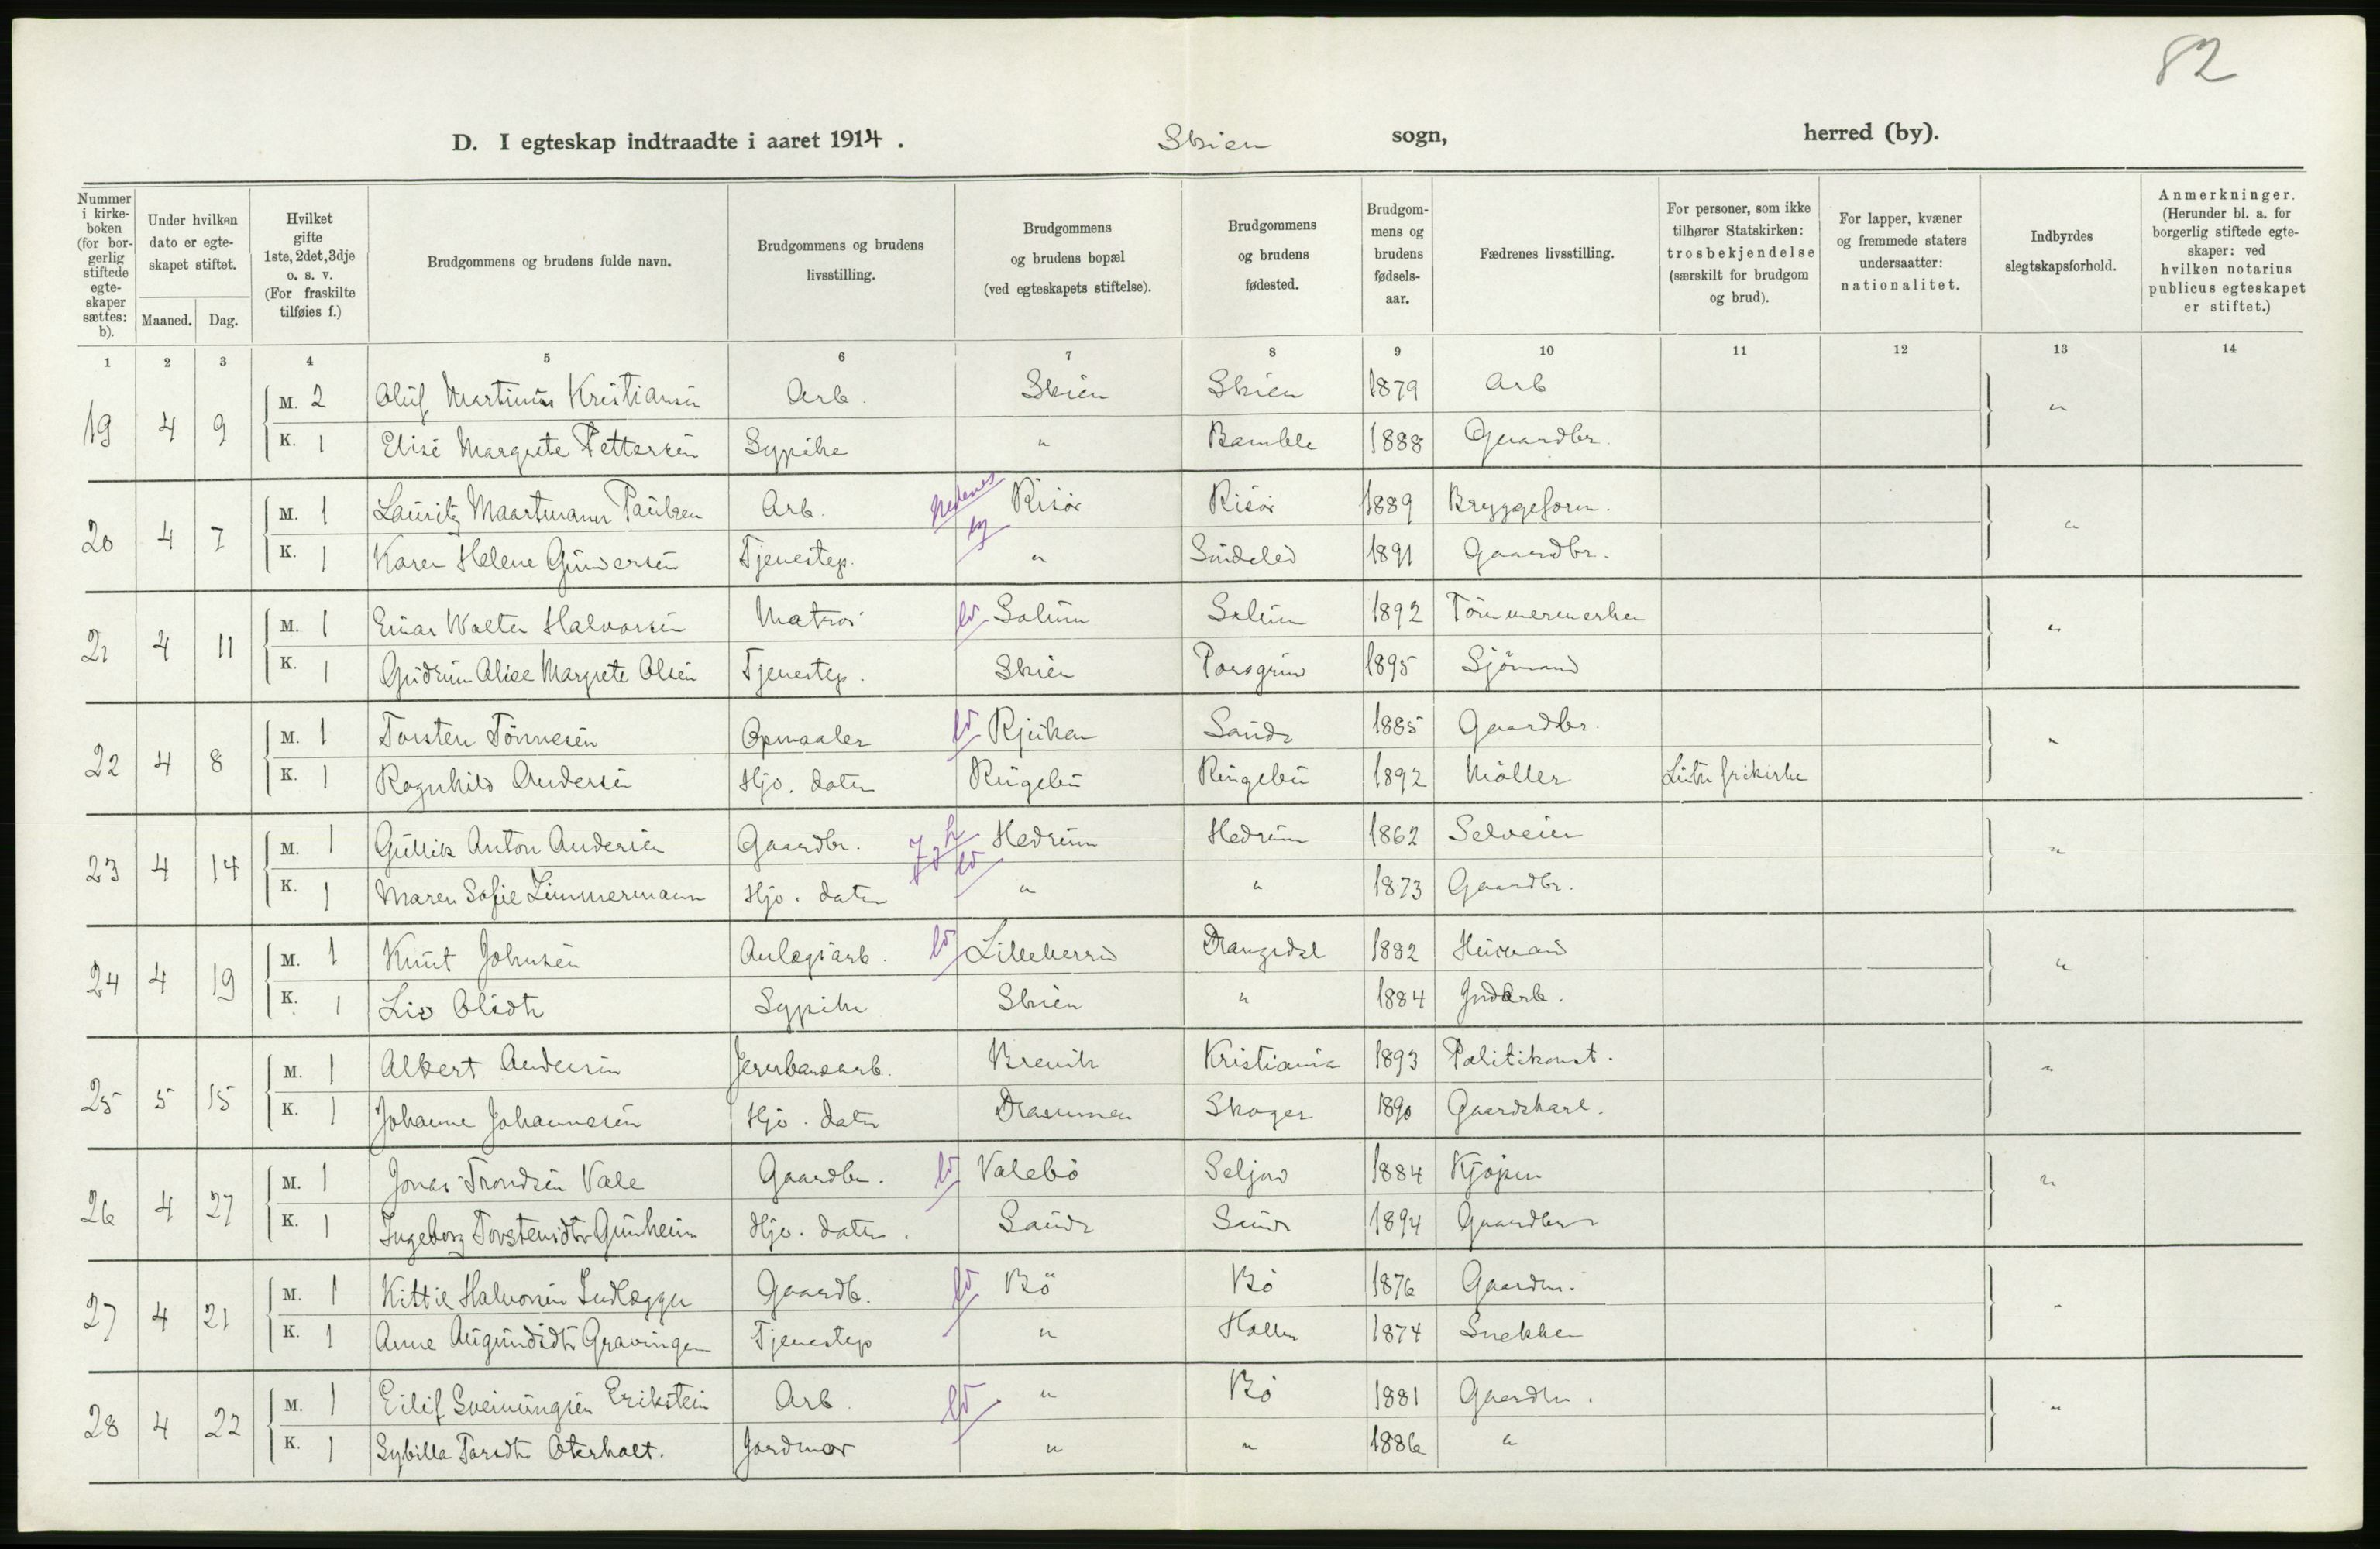 82
D. I egteskap indtraadte i aaret 1914 . Skien sogn, herred (by).
Nummer i kirkeboken (for borgerlig stiftede egteskaper sættes: b).
Under hvilken dato er egteskapet stiftet.
Maaned. Dag.
Hvilket gifte 1ste, 2det, 3dje o. s. v. (For fraskilte tilføies f.)
Brudgommens og brudens fulde navn.
Brudgommens og brudens livsstilling.
Brudgommens og brudens bopæl (ved egteskapets stiftelse).
Brudgommens og brudens fødested.
Brudgommens og brudens fødselsaar.
Fædrenes livsstilling.
For personer, som ikke tilhører Statskirken: trosbekjendelse (særskilt for brudgom og brud).
For lapper, kvæner og fremmede staters undersaatter: nationalitet.
Indbyrdes slegtskapsforhold.
Anmerkninger. (Herunder bl. a. for borgerlig stiftede egteskaper: ved hvilken notarius publicus egteskapet er stiftet.)
1 2 3 4 5 6 7 8 9 10 11 12 13 14
19 4 9 M. 2 Oluf Martinius Kristiansen Arb. Skien Skien 1879 Arb "
K. 1 Elise Margrete Pettersen Sypike " Bamble 1888 Gaardbr.
20 4 7 M. 1 Lauritz Maartmann Paulsen Arb. Nedenes by Risör Risör 1889 Bryggeform. "
K. 1 Karen Helene Gundersen Tjenestep. " Sündeled 1891 Gaardbr.
21 4 11 M. 1 Einar Walter Halvorsen Matros ld Solum Solum 1892 Tömmermerker "
K. 1 Gudrun Alice Margrete Olsen Tjenestep. Skien Porsgrun 1895 Sjömand
22 4 8 M. 1 Torsten Tönnesen Opmaaler ld Rjukan Saude 1885 Gaardbr. "
K. 1 Ragnhild Andersen Hjv. datter Ringebu Ringebu 1892 Möller Luth frikirke
23 4 14 M. 1 Gullik Anton Andersen Gaardbr. ld Hedrum Hedrum 1862 Selveier "
K. 1 Maren Sofie Zimmermann Hjv. datter " " 1873 Gaardbr.
24 4 19 M. 1 Knut Johnsen Anlegsarb. ld Lilleherred Drangedal 1882 Husmand "
K. 1 Liv Olsdtr Sypike Skien " 1884 Indarb.
25 5 15 M. 1 Albert Andersen Jernbanearb. Brevik Kristiania 1893 Politikonst. "
K. 1 Johanne Johannesen Hjv. datter Drammen Skoger 1890 Gaardskarl.
26 4 27 M. 1 Jonas Trondsen Vale Gaardbr. ld Valebö Seljord 1884 Kjøpm "
K. 1 Ingeborg Torstensdtr Gunheim Hjv. datter. Saude Saude 1894 Gaardbr
27 4 21 M. 1 Kittil Halvorsen Gaardb. ld Bö Bö 1876 Gaardbr. "
K. 1 Anne Augundsdtr Gravingen Tjenestep " Holla 1874 Snekker
28 4 22 M. 1 Eilif Sveinungsen Erikstein Arb. ld " Bö 1881 Gaardbr. "
K. 1 Sybilla Torsdtr Oterholt. Jordmor " " 1886 "